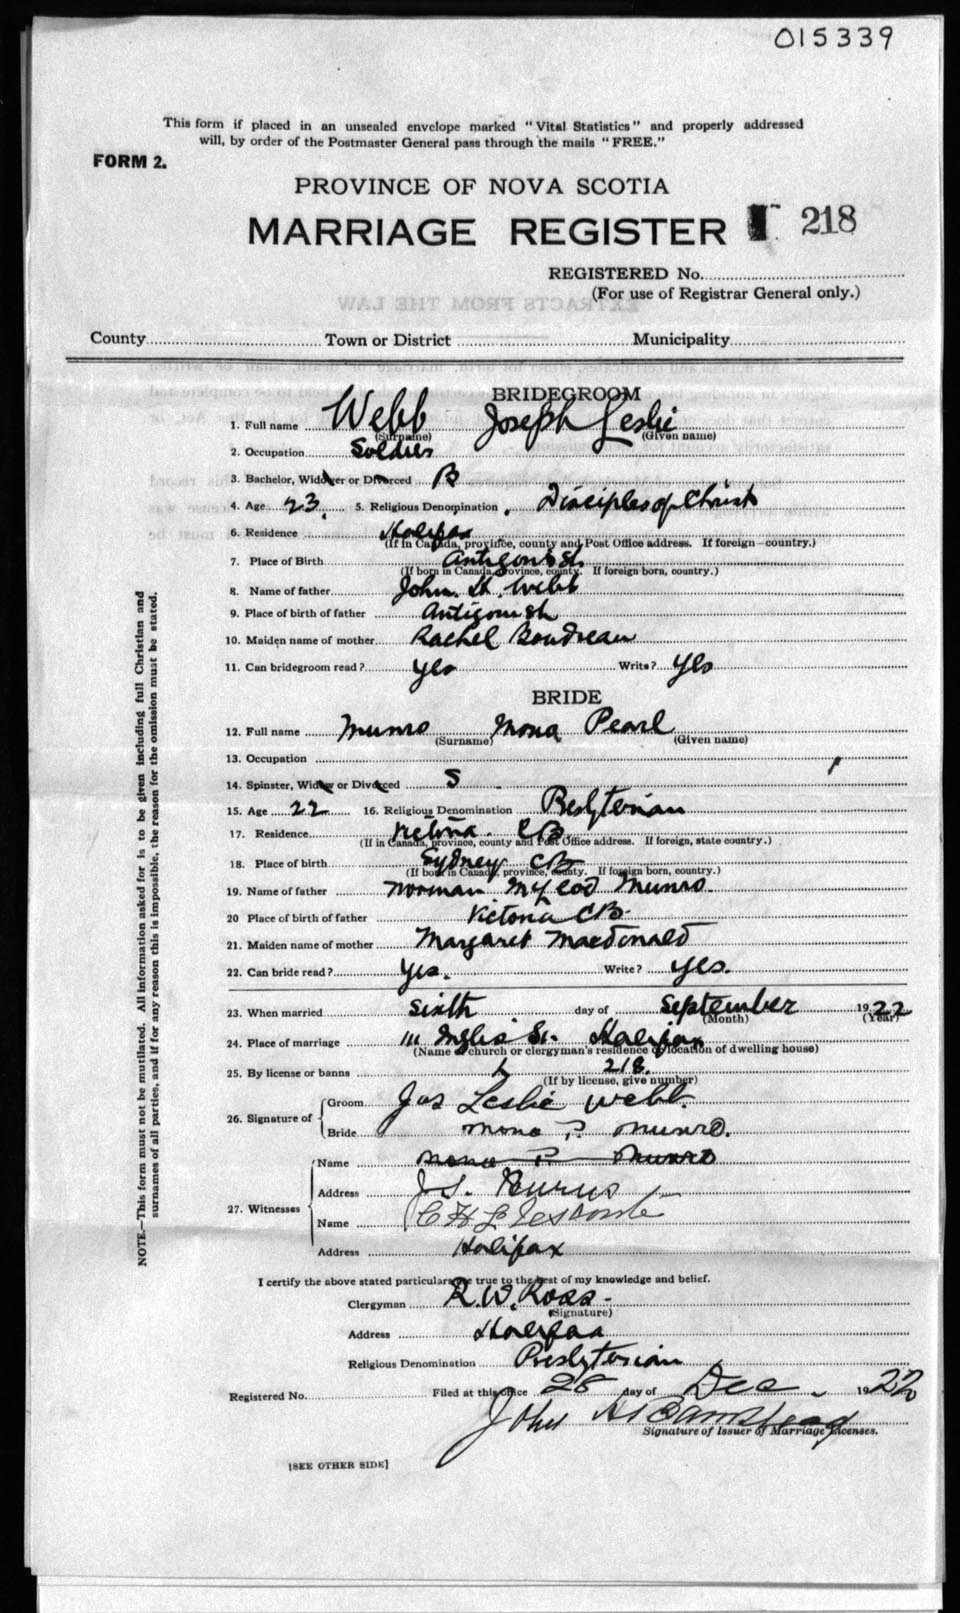 015339
This form if placed in an unsealed envelope marked "Vital Statistics" and properly addressed
will, by order of the Postmaster General pass through the mails "FREE."
FORM 2.
PROVINCE OF NOVA SCOTIA
MARRIAGE REGISTER 218
REGISTERED No.
(For use of Registrar General only.)
EXTRACTS FROM THE LAW
County Town or District Municipality
BRIDEGROOM
1. Full name Webb Joseph Leslie
(Surname) (Given name)
2. Occupation Soldier
3. Bachelor, Widower or Divorced B
4. Age 23. 5. Religious Denomination Disciples of Christ
6. Residence Halifax
(If in Canada, province, county and Post Office address. If foreign country.)
7. Place of Birth Antigonish
(If born in Canada, province, county. If foreign born, country.)
8. Name of father John. H. Webb
9. Place of birth of father Antigonish
10. Maiden name of mother Rachel Boudreau
11. Can bridegroom read? yes Write? yes
BRIDE
12. Full name Munro Mona Pearl
(Surname) (Given name)
13. Occupation
14. Spinster, Widow or Divorced S
15. Age 22 16. Religious Denomination Presbyterian
17. Residence Victoria. CB
(If in Canada, province, county and Post Office address. If foreign, state country.)
18. Place of birth Sydney CB
(If born in Canada, province, county. If foreign born, country.)
19. Name of father Norman McLeod Munro.
20 Place of birth of father Victoria CB.
21. Maiden name of mother Margaret Macdonald
22. Can bride read? yes. Write? yes.
23. When married sixth day of September 1922
(Month) (Year)
24. Place of marriage 111 Inglis St. Halifax
(Name of church or clergyman's residence or location of dwelling house)
25. By license or banns L 218.
(If by license, give number)
26. Signature of Groom Jos Leslie Webb.
Bride Mona P. Munro.
27. Witnesses Name Mona P. Munro
Address J S. Burns
Name
Address Halifax
I certify the above stated particulars are true to the best of my knowledge and belief.
Clergyman R. W. Ross.
(Signature)
Address Halifax
Religious Denomination Presbyterian
Registered No. Filed at this office 28 day of Dec. 1922
John H Barnstead
Signature of Issuer of Marriage Licenses.
[SEE OTHER SIDE]
NOTE.—This form must not be mutilated. All information asked for is to be given including full Christian and
surnames of all parties, and if for any reason this is impossible, the reason for the omission must be stated.